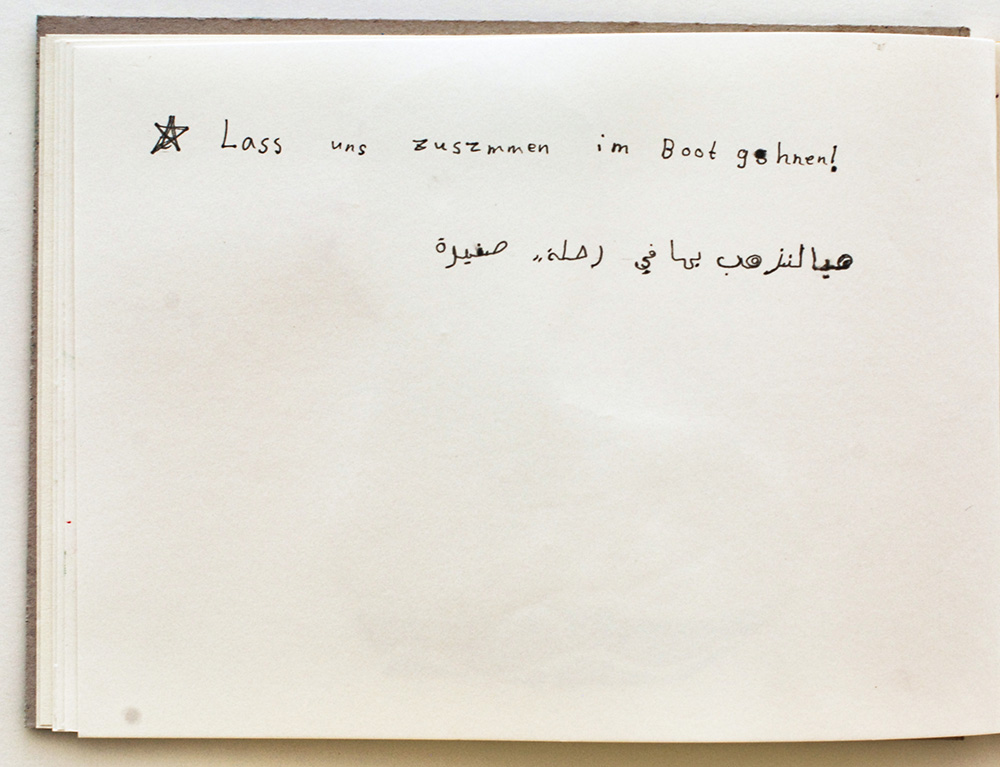 ☆ Lass uns zuszmmen im Boot gehnen!
هيا لنذهب بها في رحلة,, صغيرة